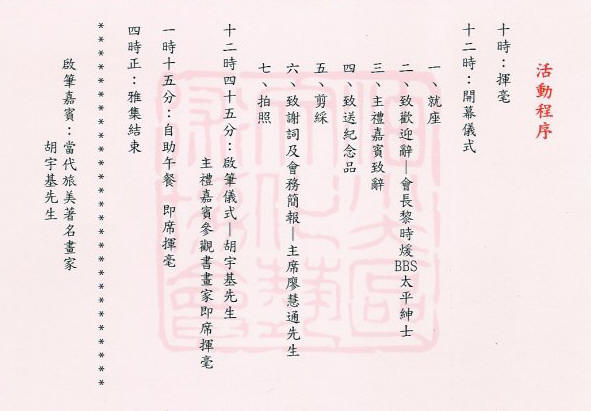 活動程序
十時：揮毫
十二時：開幕儀式
一、就座
二、致歡迎辭—會長黎時煖BBS太平紳士
三、主禮嘉賓致辭
四、致送紀念品
五、剪綵
六、致謝詞及會務簡報—主席廖慧通先生
七、拍照
十二時四十五分：啟筆儀式—胡宇基先生
主禮嘉賓參觀書畫家即席揮毫
一時十五分：自助午餐 即席揮毫
四時正：雅集結束
* * * * * * * * * * * * * * * * * * * * * * * * *
啟筆嘉賓：當代旅美著名畫家
胡宇基先生